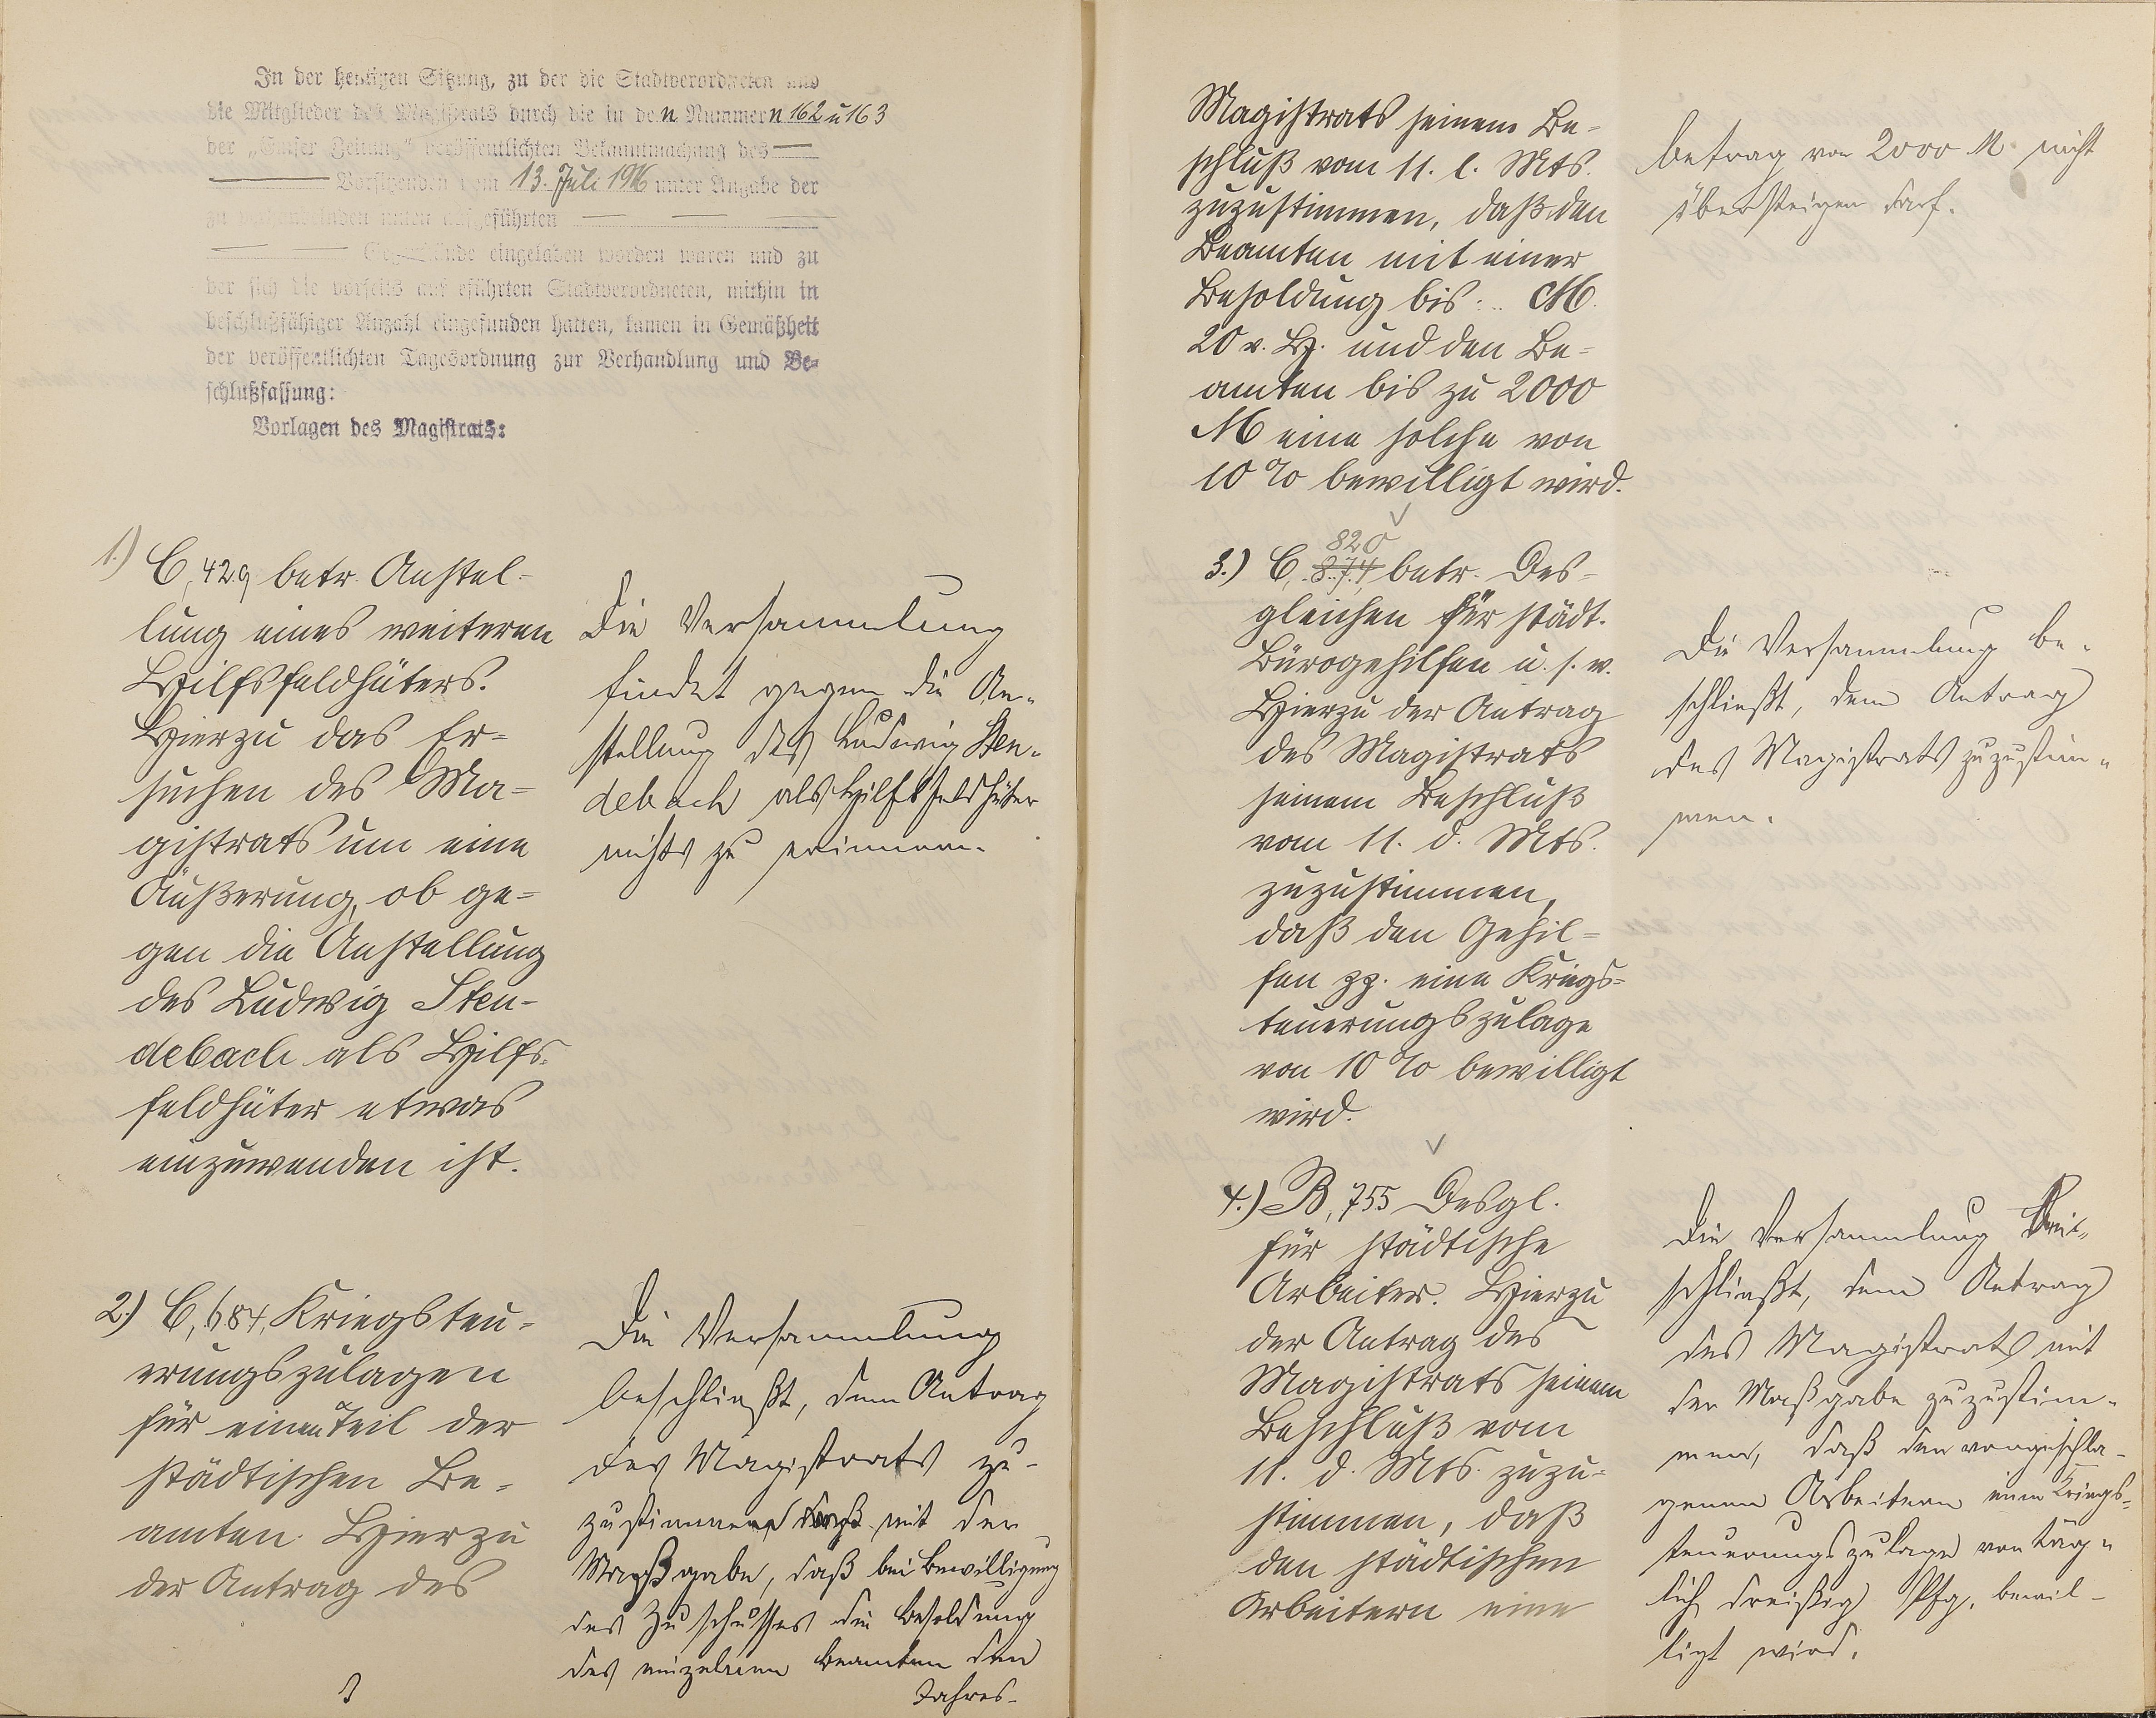 In der heutigen Sitzung, zu der die Stadtverordneten und
die Mitglieder des Magistrats durch die in den Nummern 162 u 163
der „Emser Zeitung“ veröffentlichten Bekanntmachung des —
— Vorsitzenden vom 13. Juli 1916 unter Angabe der
zu verhandelnden unten aufgeführten — — —
— Gegenstände eingeladen worden waren und zu
der sich die vorseits aufgeführten Stadtverordneten, mithin in
beschlußfähiger Anzahl eingefunden hatten, kamen in Gemäßheit
der veröffentlichten Tagesordnung zur Verhandlung und Be-
schlußfassung:
Vorlagen des Magistrats:
1.) C, 429 betr. Anstel-
lung eines weiteren
Hilfsfeldhüters.
Hierzu das Er-
suchen des Ma-
gistrats um eine
Äußerung, ob ge-
gen die Anstellung
des Ludwig Sten-
debach als Hilfs-
feldhüter etwas
einzuwenden ist.
Die Versammlung
findet gegen die An-
stellung des Ludwig Sten-
debach als Hilfsfeldhüter
nichts zu erinnern.
2.) C, 684, Kriegsteu-
erungszulagen
für einen Teil der
städtischen Be-
amten. Hierzu
der Antrag des
Die Versammlung
beschließt, dem Antrag
des Magistrats zu-
zustimmen mit der
Maßgabe, daß bei Bewilligung
des Zuschusses die Besoldung
des einzelnen Beamten den
Jahres-
Magistrats seinem Be-
schluß vom 11. l. Mts.
zuzustimmen, daß den
Beamten mit einer
Besoldung bis .. M.
20 v. H. und den Be-
amten bis zu 2000
M eine solche von
10 % bewilligt wird.
betrag von 2000 M nicht
übersteigen darf.
820
3.) C, 874, betr. Des-
gleichen für städt.
Bürogehilfen u. s. w.
Hierzu der Antrag
des Magistrats
seinem Beschluß
vom 11. d. Mts.
zuzustimmen,
daß den Gehil-
fen pp. eine Kriegs-
teuerungszulage
von 10 % bewilligt
wird.
Die Versammlung be-
schließt, dem Antrag
des Magistrats zuzustim-
men.
4.) B, 755 Desgl.
für städtische
Arbeiter. Hierzu
der Antrag des
Magistrats seinem
Beschluß vom
11. d. Mts. zuzu-
stimmen, daß
den städtischen
Arbeitern eine
Die Versammlung
schließt, dem Antrag
des Magistrats mit
der Maßgabe zuzustim-
men, daß den vorgeschla-
genen Arbeitern eine Kriegs-
teuerungszulage von täg-
lich dreißig Pfg. bewil-
ligt wird.